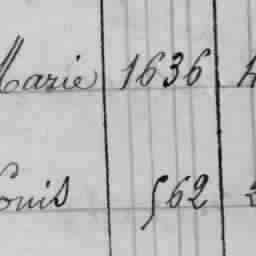 Marie 1636
Louis 562